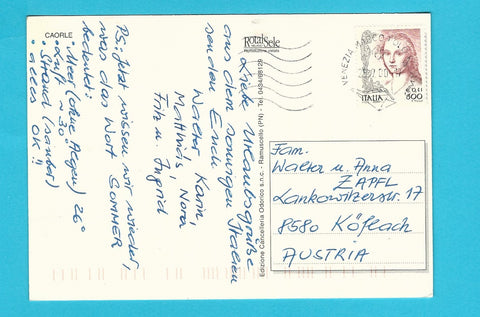 CAORLE
RotalSele
Liebe Urlaubsgrüße
aus dem sonnigen Italien
senden Euch
Walter, Karin,
Matthias, Nora
Fritz u. Ingrid
PS: Jetzt wissen wir wieder,
was das Wort SOMMER
bedeutet:
• Meer (ohne Algen) 26°
• Luft ~ 30°
• Strand (sauber)
• alles OK!!
Edizione Cancelleria Odorico s.n.c. - Ramuscello (PN) - Tel. 0434/68129
VENEZIA
ITALIA
800
Fam.
Walter u. Anna
ZAPFL
Lankowitzerstr. 17
8580 Köflach
AUSTRIA